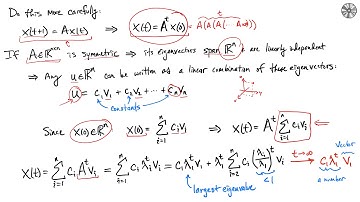 Do this more carefully:
x(t+1) = A x(t) ⇒ x(t) = Aᵗ x(0) = A(A(A(... Ax0)) t
If A ∈ ℝⁿˣⁿ is symmetric ⇒ its eigenvectors span ℝⁿ & are linearly independent
⇒ Any u ∈ ℝⁿ can be written as a linear combination of these eigenvectors:
u = c₁v₁ + c₂v₂ + ... + cₙvₙ
constants
Since x(0) ∈ ℝⁿ x(0) = Σⁿᵢ₌₁ cᵢvᵢ ⇒ x(t) = Aᵗ Σⁿᵢ₌₁ cᵢvᵢ ⇐
x(t) = Σⁿᵢ₌₁ cᵢAᵗvᵢ = Σⁿᵢ₌₁ cᵢλᵢᵗvᵢ = c₁λ₁ᵗv₁ + λ₁ᵗ Σⁿᵢ₌₂ cᵢ(λᵢ/λ₁)ᵗ vᵢ t→∞ → c₁λ₁ᵗ v₁
vector
<1
a number
largest eigenvalue